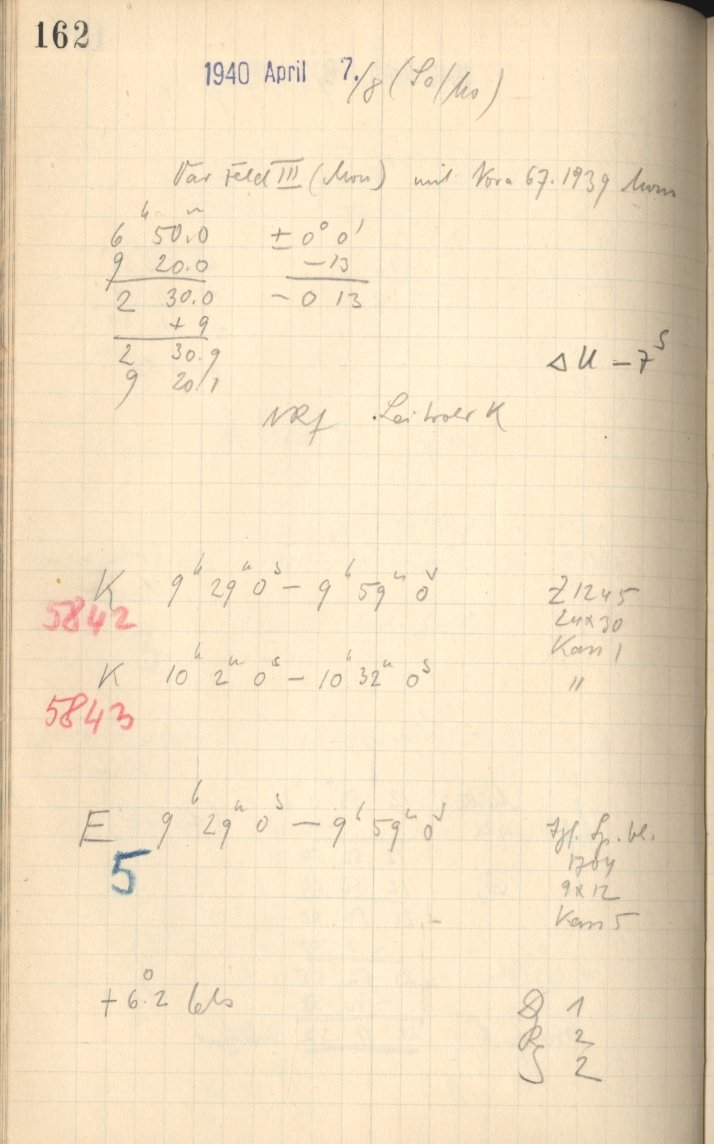 162
1940 April 7./8 (So/Mo)
Var Feld III (Mon) mit Nova 67.1939 Mon
6ʰ 50ᵐ.0 ± 0° 0'
9 20.0 − 13
2 30.0 − 0 13
+ 9
2 30.9
9 20.1
ΔU − 7ˢ
K
K 9ʰ 29ᵐ 0ˢ − 9ʰ 59ᵐ 0ˢ Z 1245
5842 24x30
Kass 1
K 10ʰ 2ᵐ 0ˢ − 10ʰ 32ᵐ 0ˢ "
5843
E 9ʰ 29ᵐ 0ˢ − 9ʰ 59ᵐ 0ˢ
5
9x12
Kass 5
+ 6°.2
1
R 2
S 2